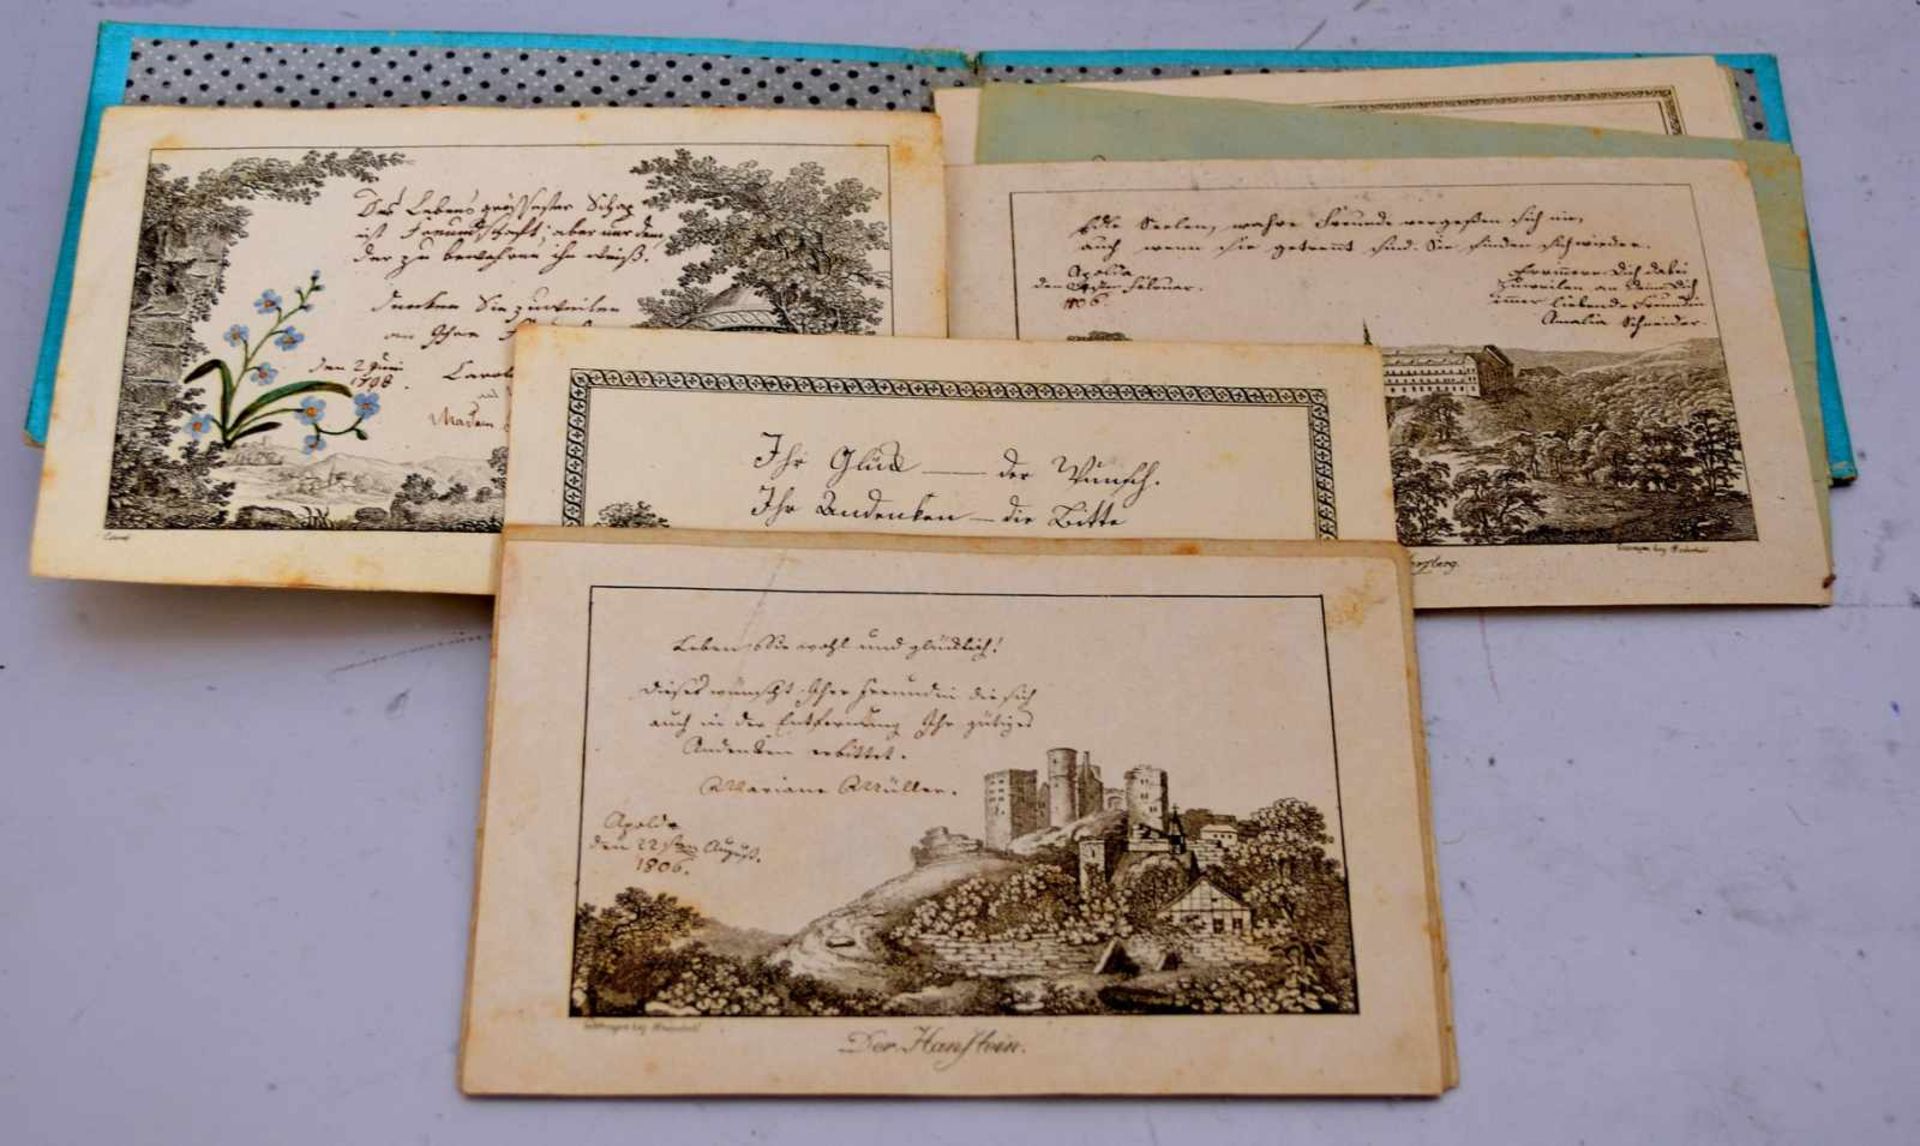 Des Lebens grösster Schaz
ist Freundschaft; aber nur dem,
der zu bewahren ihn weiß.
Denken Sie zuweilen
an Ihre
den 2 Juni
1808.
Madem
Edle Seelen, wahre Freunde vergeßen sich nie,
auch wenn sie getrennt sind. Sie finden sich wieder.
Apolda
den Februar.
1806.
Erinnere Dich dabei
zuweilen an Dich
immer liebende Freundin
Amalia Schneider.
Ihr Glück — der Wunsch.
Ihr Andenken — die Bitte
Leben Sie wohl und glücklich!
Dieses wünscht Ihre Freundin die sich
auch in der Entfernung Ihr gütiges
Andenken erbittet.
Mariane Müller.
Apolda
den 22sten August.
1806.
Der Hanstein.